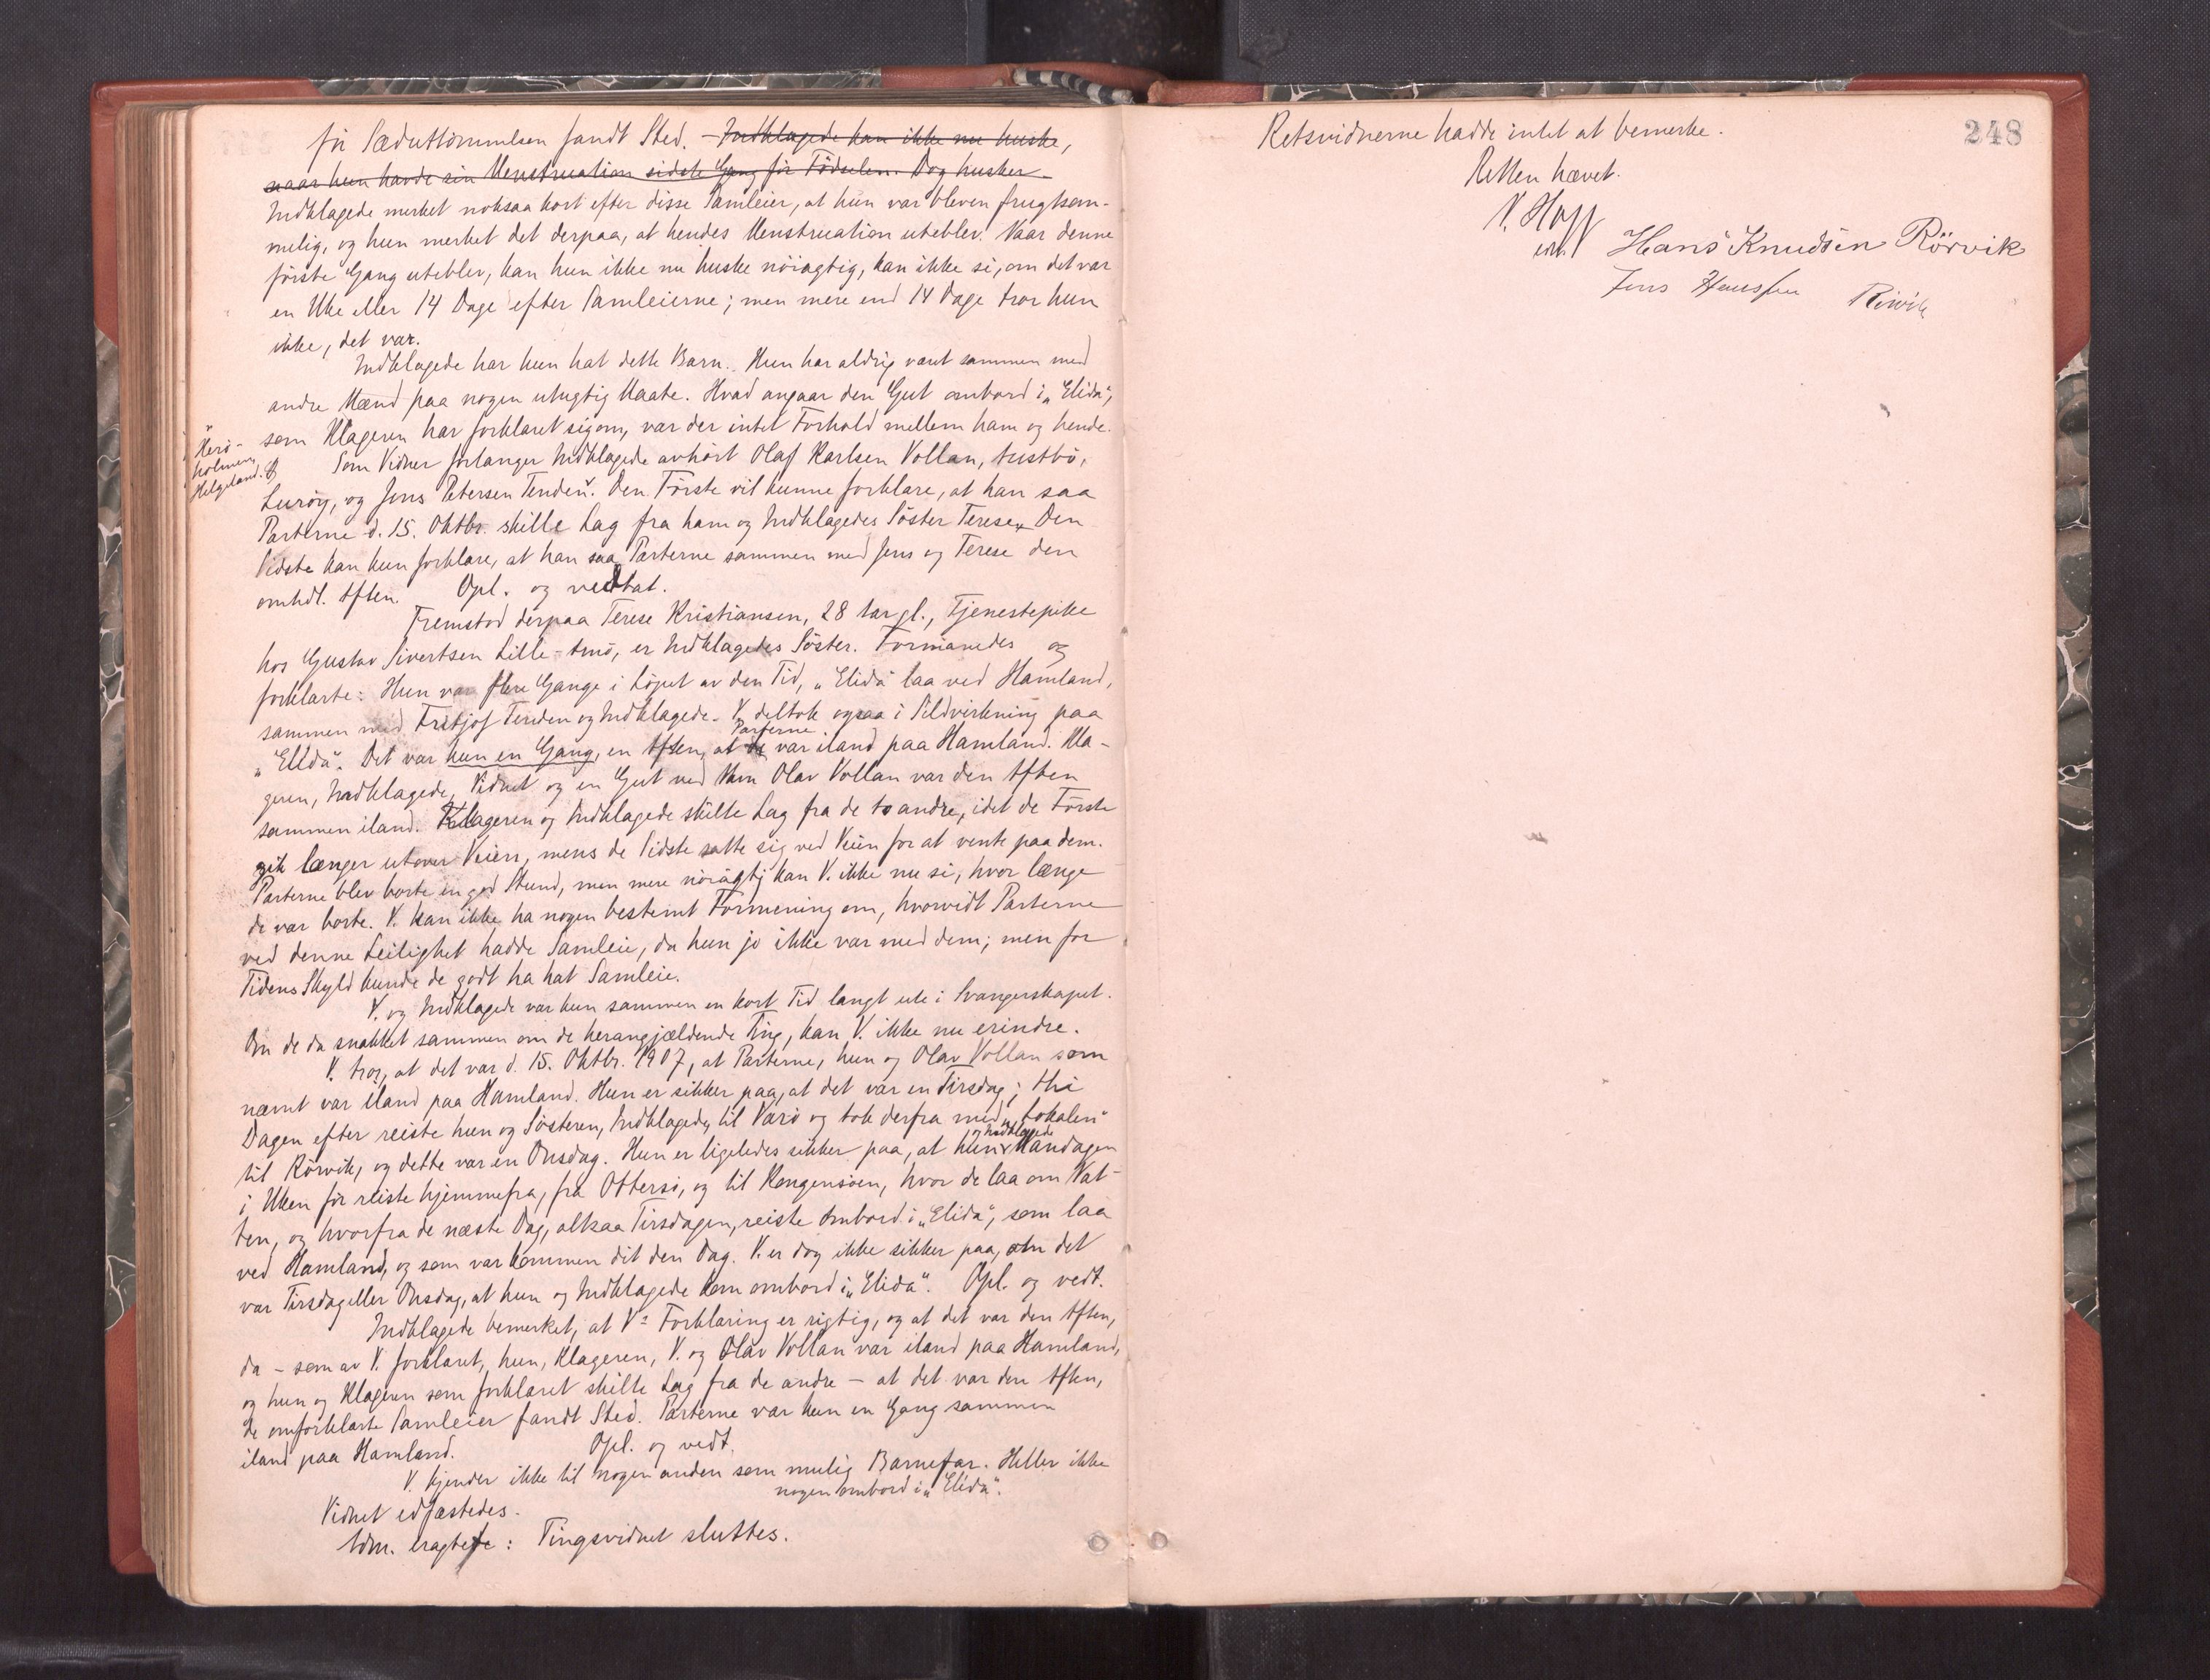 før Sæduttømmelsen fandt Sted. – Indklagede kan ikke nu huske,
naar hun havde sin Menstruation sidste Gang før Fødselen. Dog husker
Indklagede merket noksaa kort efter disse Samleier, at hun var bleven frugtsom-
melig, og hun merket det derpaa, at hendes Menstruation uteblev. Naar denne
første Gang uteblev, kan hun ikke nu huske nöiagtig, kan ikke si, om det var
en Uke eller 14 Dage efter Samleierne; men mere end 14 Dage tror hun
ikke, det var.
Indklagede har kun hat dette Barn. Hun har aldrig været sammen med
andre Mænd paa nogen utugtig Maate. Hvad angaar den Gut ombord i „Elida“,
som Klageren har forklaret sig om, var der intet Forhold mellem ham og hende.
Som Vidner forlanger Indklagede avhört Olaf Karlsen Vollan,
Herö-
holmen,
Helgeland.
Luröy, og Jens Petersen Tenden. Den Første vil kunne forklare, at han saa
Parterne d. 15. Oktbr. skille Lag fra ham og Indklagedes Söster Terese. Den
Sidste kan kun forklare, at han saa Parterne sammen med Jens og Terese den
omhdl. Aften. Opl. og vedtat.
Fremstod derpaa Terese Kristiansen, 28 Aar gl., Tjenestepike
hos Gustav Sivertsen Lille-Amö, er Indklagedes Söster. Formanedes og
forklarte: Hun var flere Gange i Löpet av den Tid, „Elida“ laa ved Hamland,
sammen med Fritjof Tenden og Indklagede. V. deltok ogsaa i Sildvirkning paa
„Elida“. Det var kun en Gang, en Aften, at Parterne var iland paa Hamland. Kla-
geren, Indklagede, Vidnet og en Gut ved Navn Olav Vollan var den Aften
sammen iland. Klageren og Indklagede skilte Lag fra de to andre, idet de Første
gik længer utover Veien, mens de Sidste satte sig ved Veien for at vente paa dem.
Parterne blev borte en god Stund, men mere nöiagtig kan V. ikke nu si, hvor længe
de var borte. V. kan ikke ha nogen bestemt Formening om, hvorvidt Parterne
ved denne Leilighet hadde Samleie, da hun jo ikke var med dem; men for
Tidens Skyld kunde de godt ha hat Samleie.
V. og Indklagede var kun sammen en kort Tid langt ute i Svangerskapet.
Om de da snakket sammen om de herangjældende Ting, kan V. ikke nu erindre.
V. tror, at det var d. 15. Oktbr. 1907, at Parterne, hun og Olav Vollan som
nævnt var iland paa Hamland. Hun er sikker paa, at det var en Tirsdag; thi
Dagen efter reiste hun og Søsteren, Indklagede, til Værö og tok derfra med „Lokalen“
til Rörvik, og dette var en Onsdag. Hun er ligeledes sikker paa, at hun og Indklagede Mandagen
i Uken før reiste hjemmefra, fra Ottersö, og til Kongensöen, hvor de laa om Nat-
ten, og hvorfra de næste Dag, altsaa Tirsdagen, reiste ombord i „Elida“, som laa
ved Hamland, og som var kommen dit den Dag. V. er dog ikke sikker paa, om det
var Tirsdag eller Onsdag, at hun og Indklagede kom ombord i „Elida“. Opl. og vedt.
Indklagede bemerket, at V.s Forklaring er rigtig, og at det var den Aften,
da – som av V. forklaret, hun, Klageren, V. og Olav Vollan var iland paa Hamland,
og hun og Klageren som forklaret skilte Lag fra de andre – at det var den Aften,
de omforklarte Samleier fandt Sted. Parterne var kun en Gang sammen
iland paa Hamland. Opl. og vedt.
V. kjender ikke til nogen anden som mulig Barnefar. Heller ikke
nogen ombord i „Elida“.
Vidnet edfæstedes.
Adm. eragtete: Tingsvidnet sluttes.
248
Retsvidnerne hadde intet at bemerke.
Retten hævet.
V. Hoff
Hans Knudsen Rörvik
Jens Hanssen Rörvik